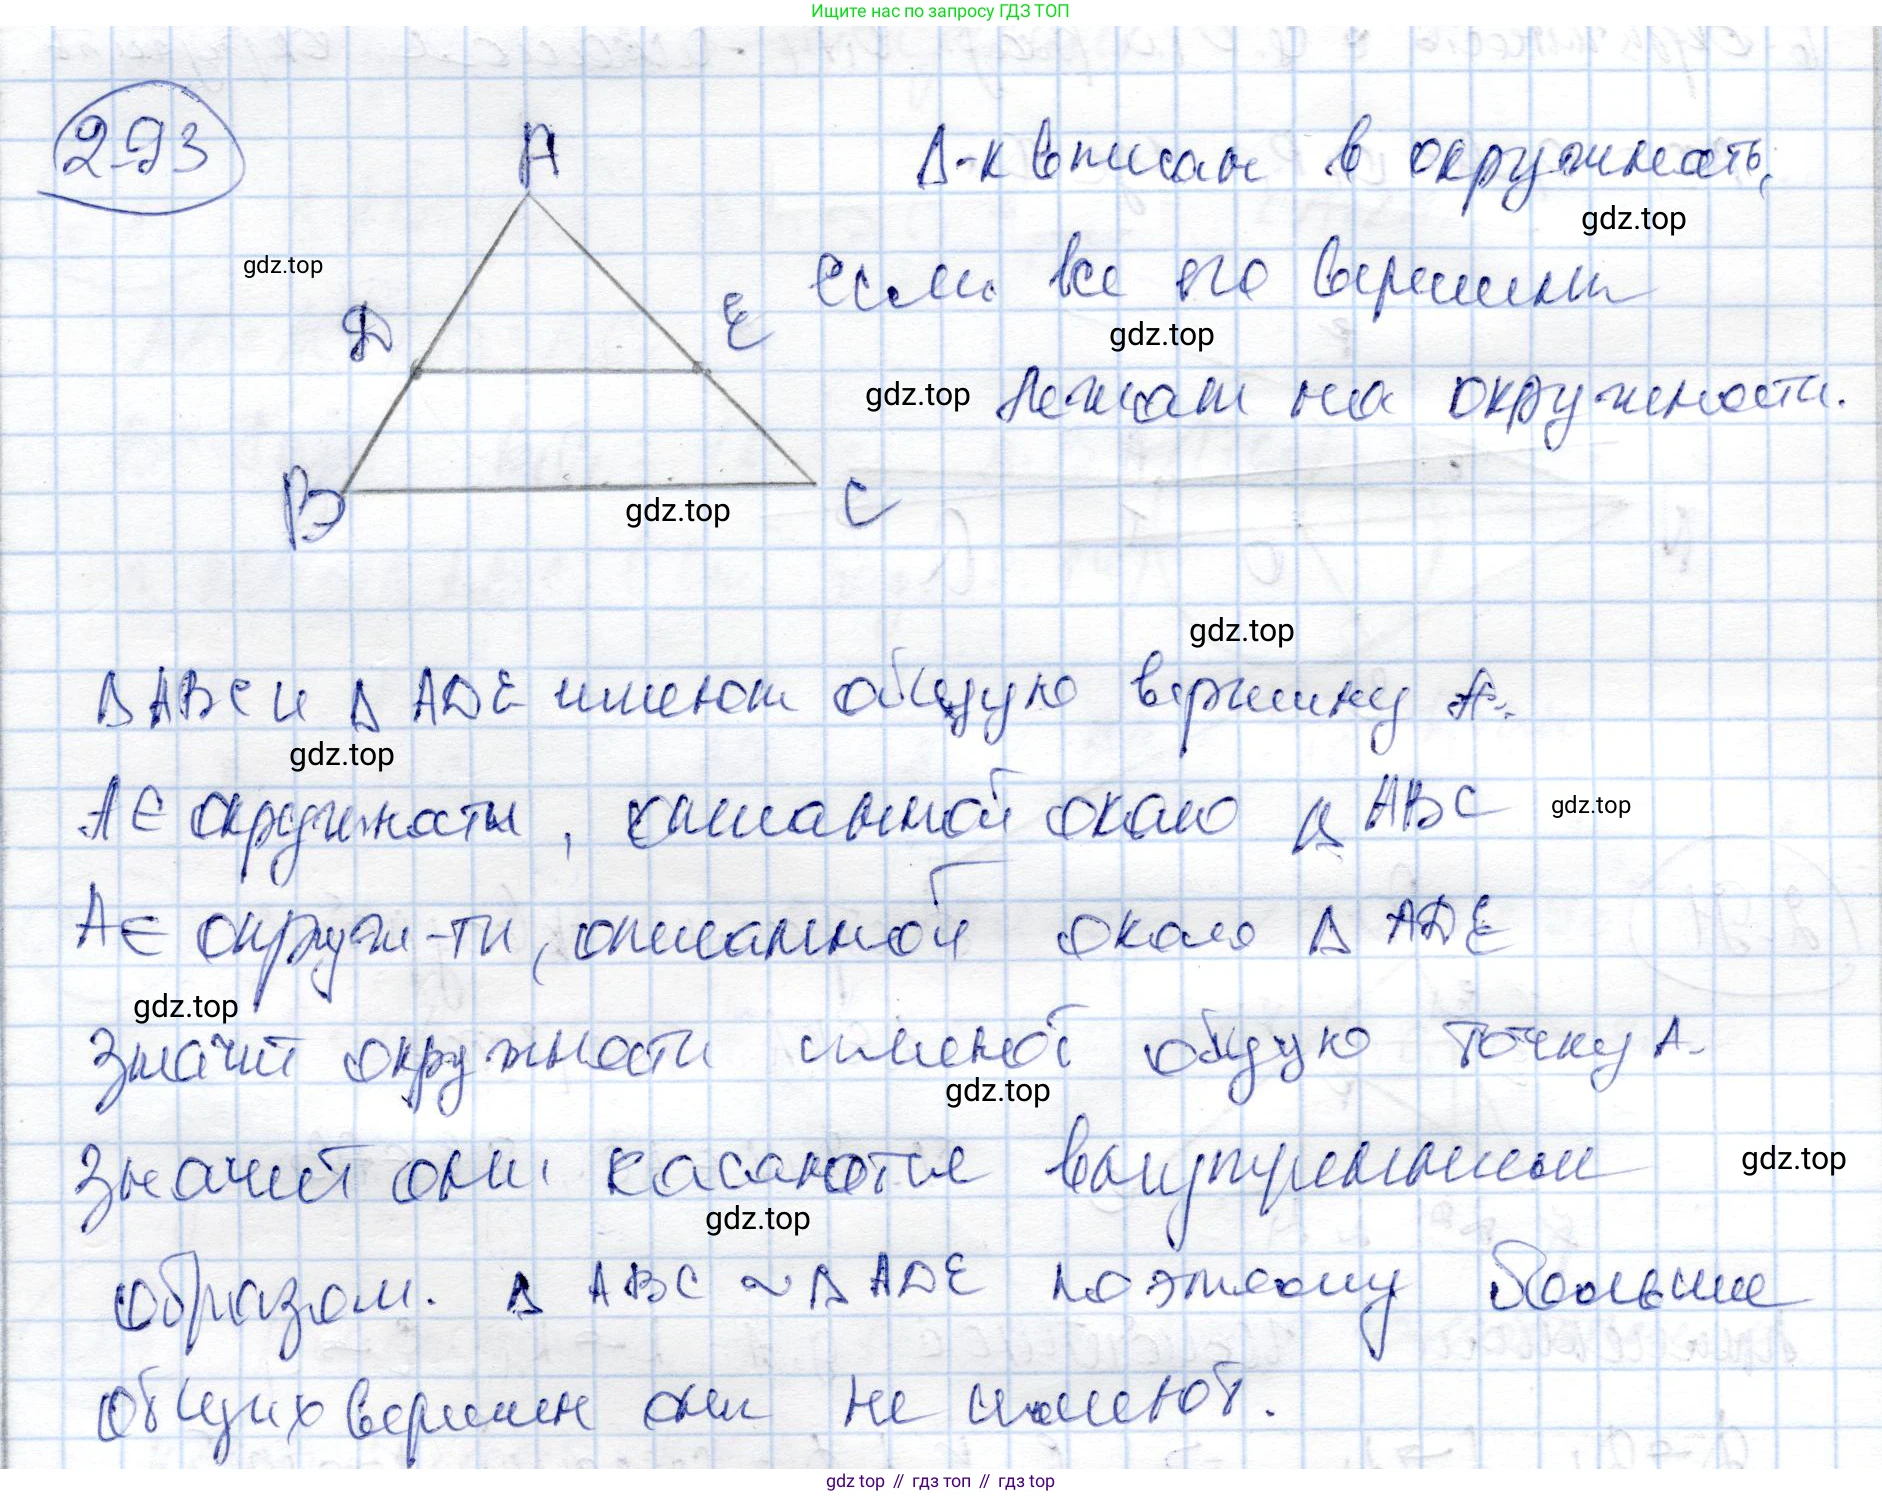 Ищите нас по запросу ГДЗ ТОП
293
A
Δ-к вписан в окружность,
gdz.top
gdz.top
D
E
если все его вершины
gdz.top
gdz.top
лежат на окружности.
B
C
gdz.top
gdz.top
Δ ABC и Δ ADE имеют общую вершину A.
gdz.top
A ∈ окружности, описанной около Δ ABC
gdz.top
A ∈ окруж-ти, описанной около Δ ADE
gdz.top
Значит окружности имеют общую точку A.
gdz.top
Значит они касаются внутренним
gdz.top
gdz.top
образом. Δ ABC ~ Δ ADE поэтому больше
общих вершин они не имеют.
gdz top // гдз топ // гдз top